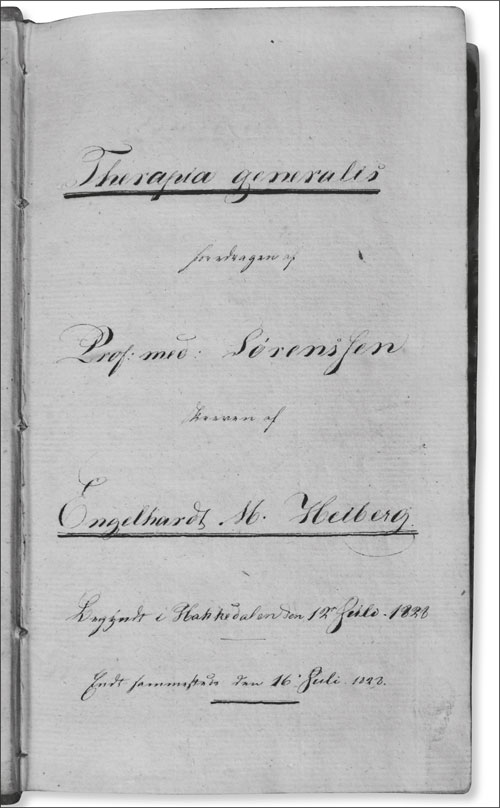 Therapia generalis
foredragen af
Prof: med: Sørenssen
skreven af
Engelhardt M. Heiberg.
Begyndt i Hakkedalen den 12te Juli. 1828
Endt sammesteds den 16' Juli. 1828.